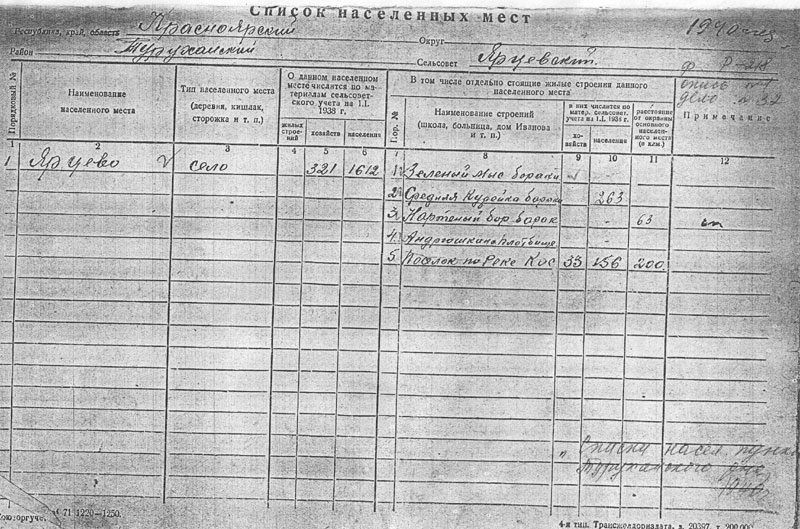 Список населенных мест
1940 год
Республика, край, область Красноярский
Округ
Район Туруханский
Сельсовет Ярцевский
ф. Р-
опись
дело №37
Порядковый №
Наименование населенного места
Тип населенного места (деревня, кишлак, сторожка и т. п.)
О данном населенном месте числятся по материалам сельсоветского учета на 1.I. 1938 г.
жилых строений
хозяйств
населения
В том числе отдельно стоящие жилые строения данного населенного места
Пор. №
Наименование строений (школа, больница, дом Иванова и т. п.)
в них числится по матер. сельсовет. учета на 1.I. 1938 г.
хозяйств
населения
расстояние от окраины основного населенного места (в клм.)
Примечание
1 2 3 4 5 6 7 8 9 10 11 12
1 Ярцево село 321 1612 1. Зеленый мыс бараки
2. Средняя бараки 263
3. бор барак 63
4. Андрюшкина плотбище
5. Поселок по реке Кас 33 156 200
„Списки насел. пунк
Туруханского р-на
1940г
Союзоргуче. 71 1220—1250.
4-я тип. Трансжелдориздата, з. 20397, т. 200.000